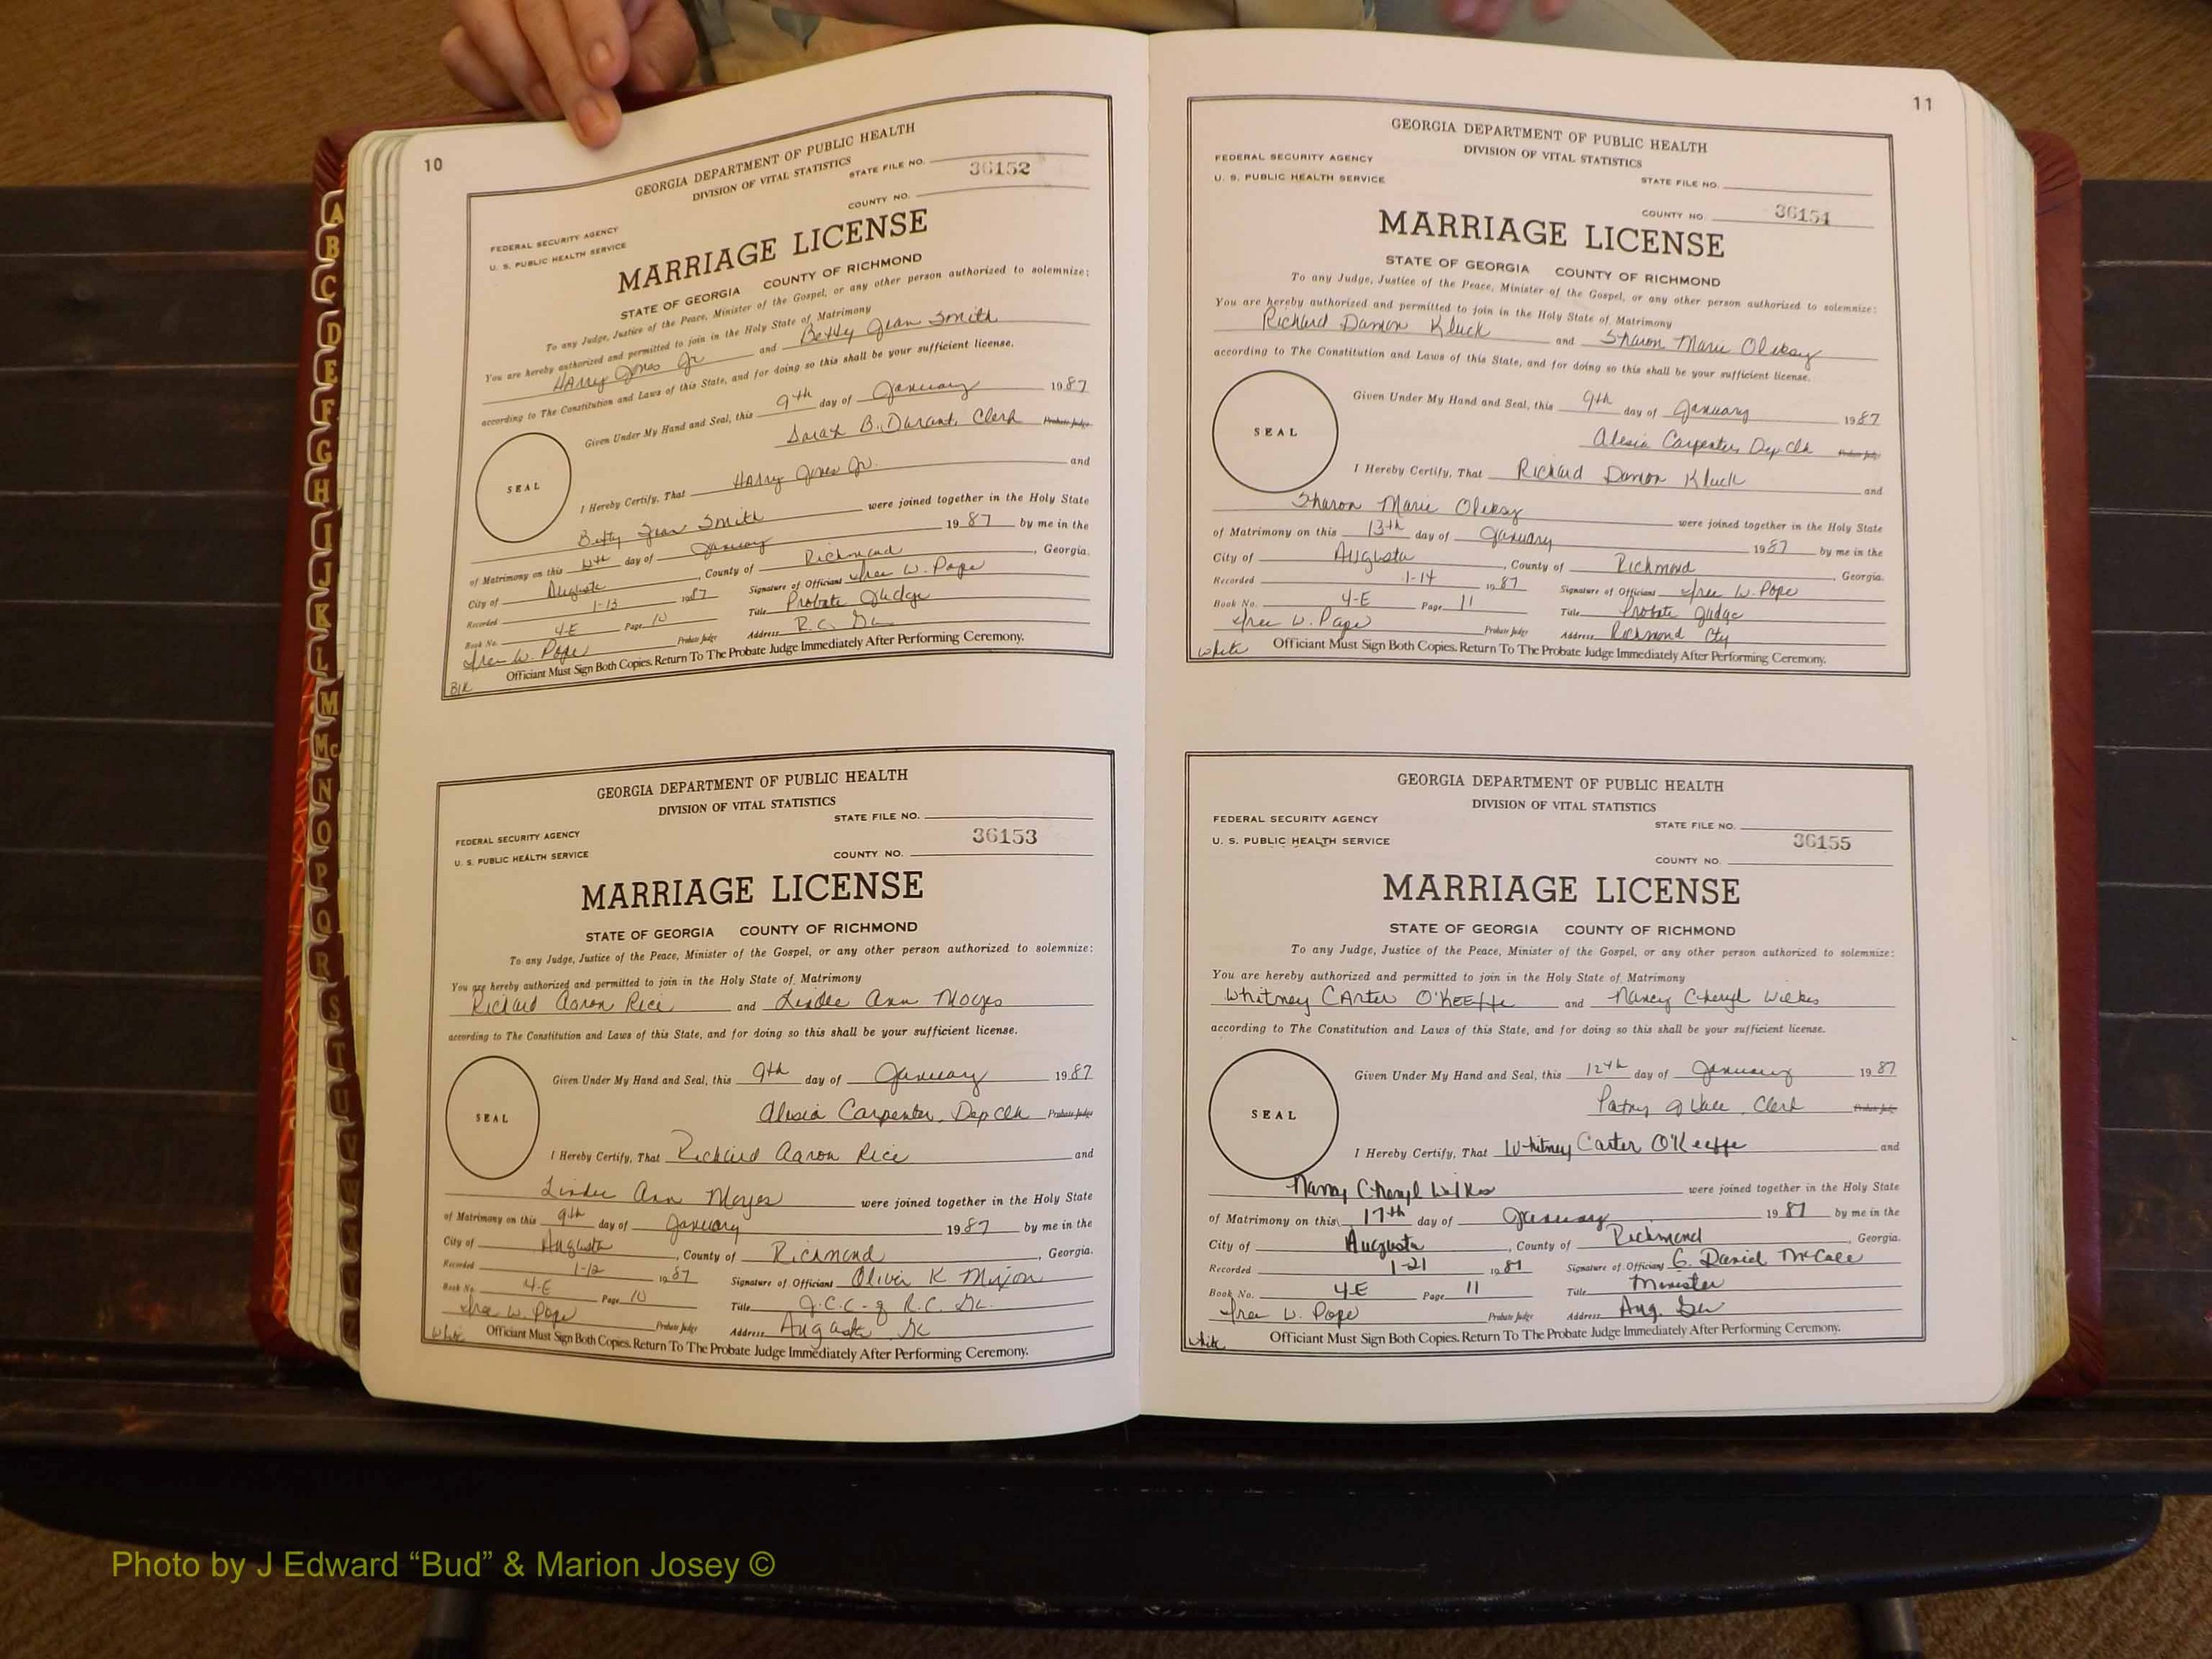 10
GEORGIA DEPARTMENT OF PUBLIC HEALTH
DIVISION OF VITAL STATISTICS
STATE FILE NO.
36152
COUNTY NO.
FEDERAL SECURITY AGENCY
U. S. PUBLIC HEALTH SERVICE
MARRIAGE LICENSE
STATE OF GEORGIA COUNTY OF RICHMOND
To any Judge, Justice of the Peace, Minister of the Gospel, or any other person authorized to solemnize:
You are hereby authorized and permitted to join in the Holy State of Matrimony
Harry Jones Jr and Betty Jean Smith
according to The Constitution and Laws of this State, and for doing so this shall be your sufficient license.
Given Under My Hand and Seal, this 9th day of January 1987
SEAL
B. Durant, Clerk Probate Judge
I Hereby Certify, That Harry Jones Jr. and
Betty Jean Smith were joined together in the Holy State
of Matrimony on this day of January 1987 by me in the
City of Augusta, County of Richmond, Georgia.
Recorded 1-13 1987 Signature of Officiant W. Pope
Book No. 4-E Page 10 Title Probate Judge
W. Pope Probate Judge Address R.C. Ga
Officiant Must Sign Both Copies. Return To The Probate Judge Immediately After Performing Ceremony.
Blk
GEORGIA DEPARTMENT OF PUBLIC HEALTH
DIVISION OF VITAL STATISTICS
STATE FILE NO.
FEDERAL SECURITY AGENCY
36153
U. S. PUBLIC HEALTH SERVICE
COUNTY NO.
MARRIAGE LICENSE
STATE OF GEORGIA COUNTY OF RICHMOND
To any Judge, Justice of the Peace, Minister of the Gospel, or any other person authorized to solemnize:
You are hereby authorized and permitted to join in the Holy State of Matrimony
Richard Aaron Rice and Lindee Ann Moyes
according to The Constitution and Laws of this State, and for doing so this shall be your sufficient license.
Given Under My Hand and Seal, this 9th day of January 1987
SEAL
Alesia Carpenter, Dep Clk Probate Judge
I Hereby Certify, That Richard Aaron Rice and
Lindee Ann Moyes were joined together in the Holy State
of Matrimony on this 9th day of January 1987 by me in the
City of Augusta, County of Richmond, Georgia.
Recorded 1-12 1987 Signature of Officiant Oliver K Mixon
Book No. 4-E Page 10 Title J.C.C. of R.C. Ga.
W. Pope Probate Judge Address Augusta Ga
White Officiant Must Sign Both Copies. Return To The Probate Judge Immediately After Performing Ceremony.
11
GEORGIA DEPARTMENT OF PUBLIC HEALTH
DIVISION OF VITAL STATISTICS
FEDERAL SECURITY AGENCY
U. S. PUBLIC HEALTH SERVICE
STATE FILE NO.
COUNTY NO. 36154
MARRIAGE LICENSE
STATE OF GEORGIA COUNTY OF RICHMOND
To any Judge, Justice of the Peace, Minister of the Gospel, or any other person authorized to solemnize:
You are hereby authorized and permitted to join in the Holy State of Matrimony
Richard Damon Kluck and Sharon Marie Oleksy
according to The Constitution and Laws of this State, and for doing so this shall be your sufficient license.
Given Under My Hand and Seal, this 9th day of January 1987
SEAL
Alesia Carpenter, Dep Clk Probate Judge
I Hereby Certify, That Richard Damon Kluck and
Sharon Marie Oleksy were joined together in the Holy State
of Matrimony on this 13th day of January 1987 by me in the
City of Augusta, County of Richmond, Georgia.
Recorded 1-14 1987 Signature of Officiant W. Pope
Book No. 4-E Page 11 Title Probate Judge
W. Pope Probate Judge Address Richmond Cty
White Officiant Must Sign Both Copies. Return To The Probate Judge Immediately After Performing Ceremony.
GEORGIA DEPARTMENT OF PUBLIC HEALTH
DIVISION OF VITAL STATISTICS
FEDERAL SECURITY AGENCY
STATE FILE NO.
U. S. PUBLIC HEALTH SERVICE
36155
COUNTY NO.
MARRIAGE LICENSE
STATE OF GEORGIA COUNTY OF RICHMOND
To any Judge, Justice of the Peace, Minister of the Gospel, or any other person authorized to solemnize:
You are hereby authorized and permitted to join in the Holy State of Matrimony
Whitney Carter O'Keeffe and Nancy Cheryl Wilkes
according to The Constitution and Laws of this State, and for doing so this shall be your sufficient license.
Given Under My Hand and Seal, this 12th day of January 1987
SEAL
Clerk Probate Judge
I Hereby Certify, That Whitney Carter O'Keeffe and
Nancy Cheryl Wilkes were joined together in the Holy State
of Matrimony on this 17th day of January 1987 by me in the
City of Augusta, County of Richmond, Georgia.
Recorded 1-21 1987 Signature of Officiant C. David McCall
Book No. 4E Page 11 Title Minister
W. Pope Probate Judge Address Aug. Ga
White Officiant Must Sign Both Copies. Return To The Probate Judge Immediately After Performing Ceremony.
A
B
C
D
E
F
G
H
I
J
K
L
M
Mc
N
O
P
Q
R
S
T
U
V
Photo by J Edward “Bud” & Marion Josey ©